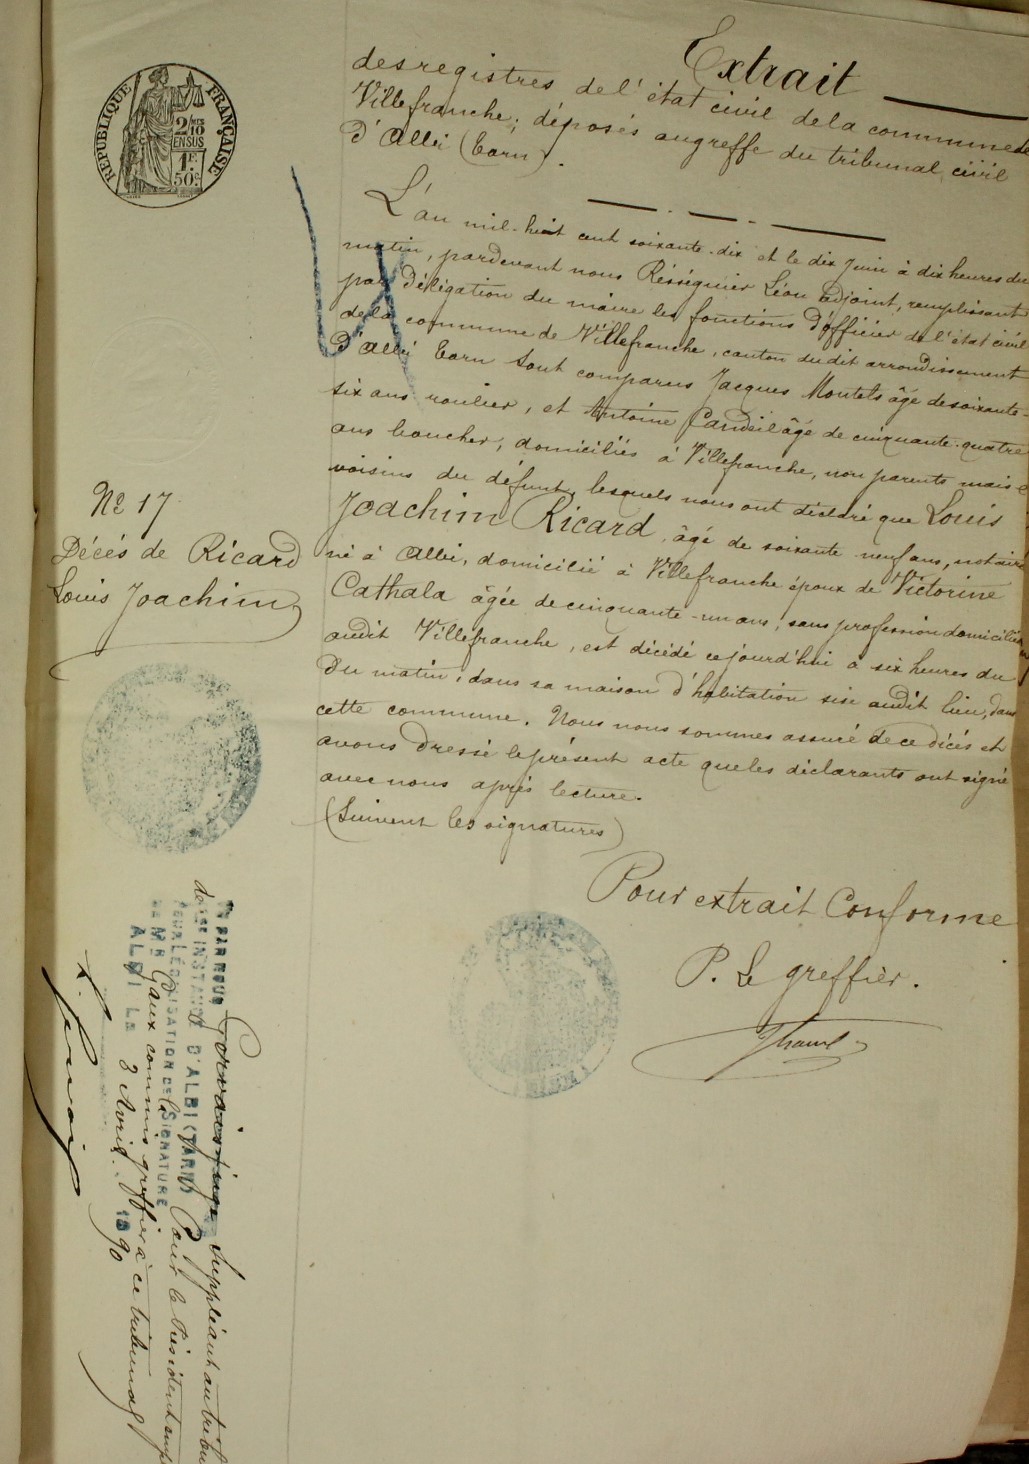 RÉPUBLIQUE FRANÇAISE
2/10
EN SUS
1F.
50c.
Extrait
des registres de l'état civil de la commune de
Villefranche, déposés au greffe du tribunal civil
d'Albi (Tarn).
L'an mil-huit cent soixante-dix et le dix Juin à dix heures du
matin, pardevant nous Rességuier Léon adjoint, remplissant
par délégation du maire les fonctions d'officier de l'état civil
de la commune de Villefranche, canton dudit arrondissement
d'Albi Tarn sont comparus Jacques Montels âgé de soixante-
six ans roulier, et Antoine Candeil âgé de cinquante-quatre
ans boucher, domiciliés à Villefranche, non parents mais
voisins du défunt, lesquels nous ont déclaré que Louis
Joachim Ricard, âgé de soixante-neuf ans, notaire
né à Albi, domicilié à Villefranche époux de Victorine
Cathala âgée de cinquante-un ans, sans profession domiciliée
audit Villefranche, est décédé cejourd'hui à six heures du
du matin, dans sa maison d'habitation sise audit lieu, dans
cette commune. Nous nous sommes assuré de ce décès et
avons dressé le présent acte que les déclarants ont signé
avec nous après lecture.
(Suivent les signatures)
No 17
Décès de Ricard
Louis Joachim
Pour extrait Conforme
P. Le greffier.
Vu PAR NOUS juge Suppléant au
de 1re INSTANCE D'ALBI (TARN) Pour le Président
POUR LÉGALISATION DE la SIGNATURE
DE MR commis greffier à ce tribunal
ALBI LE 3 Avril 1890